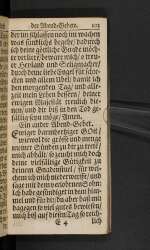 der Abend-Gebet. 103
der im schlaffen noch im wachen
was sündliches begehe, dadurch
ich deine göttliche Gnade möch-
te verliehre, bewahr mich, o treu-
er Heyland und Seligmacher,
durch deine liebe Engel für schre-
cken und allem Übel, damit ich
den morgenden Tag, und alle-
zeit mein Leben bessere, deiner
ewigen Majestät treulich die-
nen, und dir biß in den Tod ge-
fällig seyn möge, Amen.
Ein ander Abend-Gebet.
Ewiger barmhertziger Gott,
wiewol die grösse und menge
meiner Sünden zu dir zu treten
mich abhält, so zeucht mich doch
deine vielfältige Gütigkeit zu
deinem Gnadenstul, für wel-
chem ich mich niederwerffe, und
sage mit dem verlohrnen Sohn:
ich habe gesündiget in dem himm-
mel und für dir, du aber hast mir
dagegen so viel gutes bewiesen,
mich biß auf diesen Tag so reich-
E 4 lich